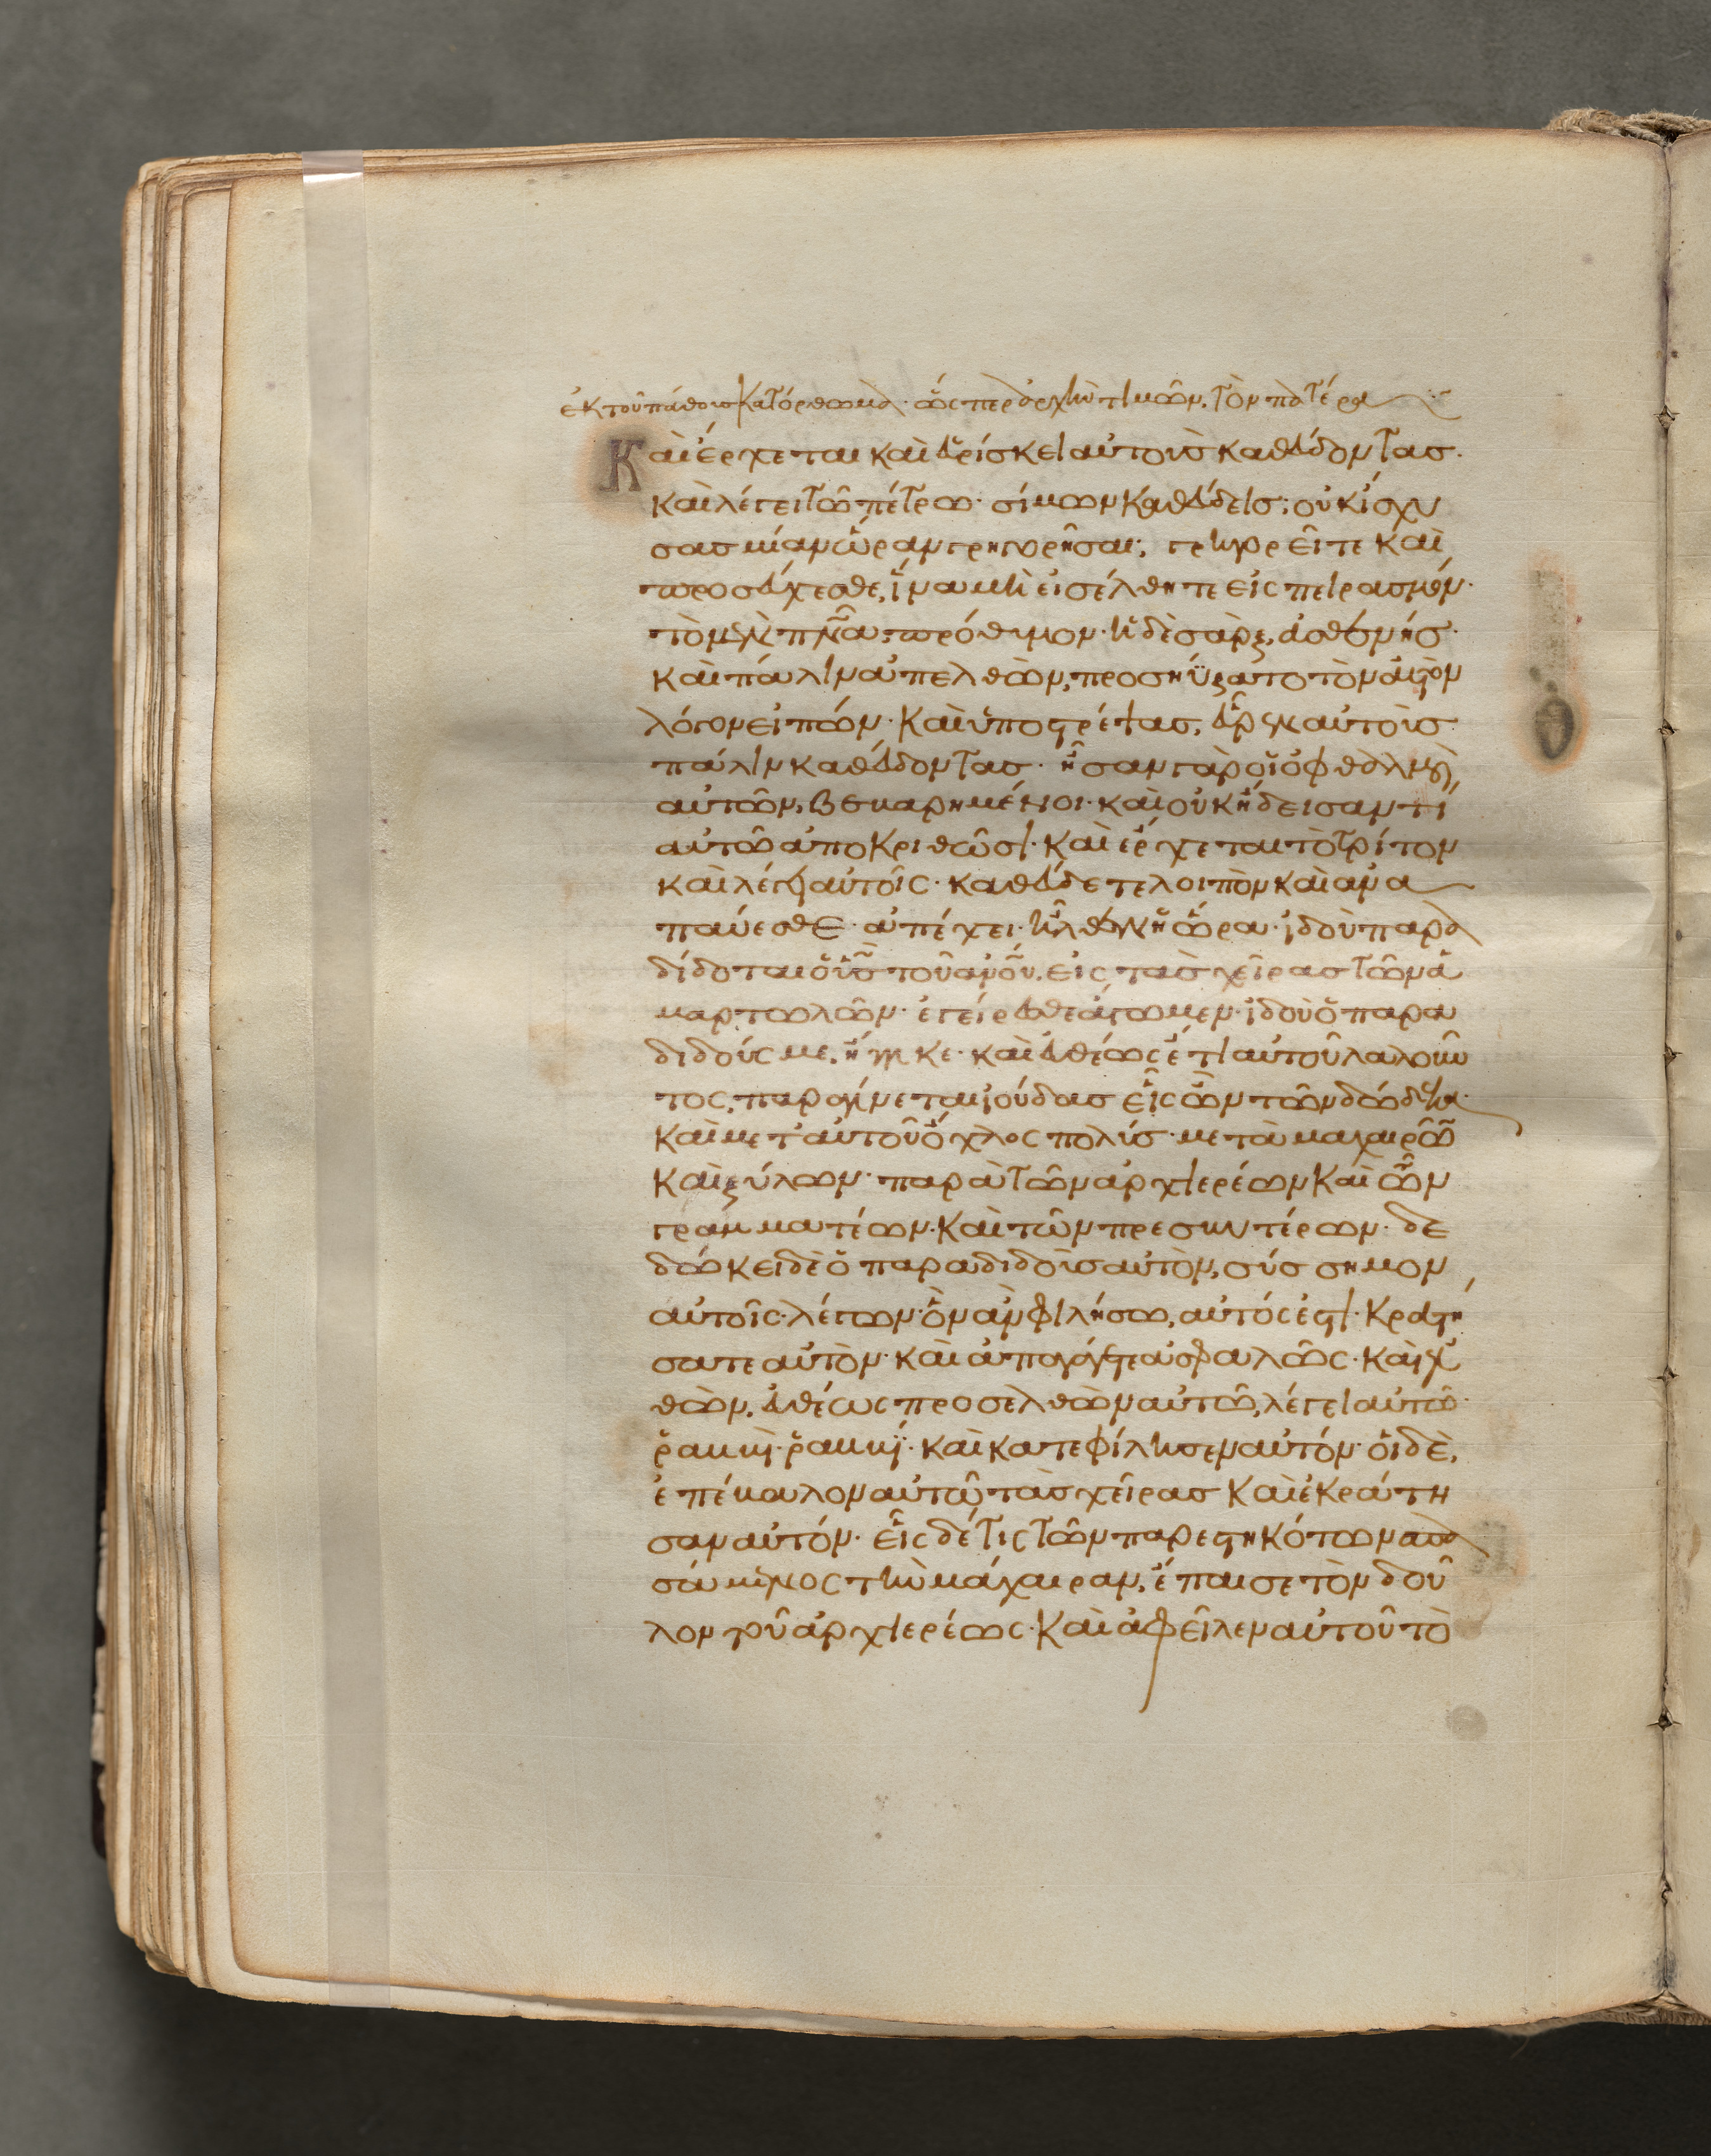 ἐκ τοῦ πάθους κατόρθωμα· ὥσπερ ἀρχὴν τιμῶν, τὸν πατέρα
Καὶ ἔρχεται καὶ εὑρίσκει αὐτοὺς καθεύδοντας·
καὶ λέγει τῶ πέτρω· σίμων καθεύδεις; οὐκ ἴσχυ
σας μίαν ὥραν γρηγορῆσαι; γρηγορεῖτε καὶ
προσεύχεσθε, ἵνα μὴ εἰσέλθητε εἰς πειρασμόν·
τὸ μὲν πνα πρόθυμον· ἡ δὲ σὰρξ, ἀσθενής·
καὶ πάλιν ἀπελθὼν, προσηύξατο τὸν αὐτὸν
λόγον εἰπών· καὶ ὑποστρέψας, εὗρεν αὐτοὺς
πάλιν καθεύδοντας· ἦσαν γὰρ οἱ ὀφθαλμοὶ
αὐτῶν, βεβαρημένοι· καὶ οὐκ ἤδεισαν τί
αὐτῶ ἀποκριθῶσι· καὶ ἔρχεται τὸ τρίτον
καὶ λέγει αὐτοῖς· καθεύδετε λοιπὸν καὶ ἀνα
παύεσθε· ἀπέχει· ἦλθεν ἡ ὥρα· ἰδοὺ παρα
δίδοται ὁ υἱς τοῦ ανου, εἰς τὰς χεῖρας τῶν ἁ
μαρτωλῶν· ἐγείρεσθε ἄγωμεν· ἰδοὺ ὁ παρα
διδούς με, ἤγγικε· καὶ εὐθέως ἔτι αὐτοῦ λαλοῦν
τος, παραγίνεται ἰούδας εἷς ὢν τῶν δώδεκα·
καὶ μετ' αὐτοῦ ὄχλος πολὺς· μετὰ μαχαιρῶν
καὶ ξύλων· παρὰ τῶν ἀρχιερέων καὶ τῶν
γραμματέων· καὶ τῶν πρεσβυτέρων· δε
δώκει δὲ ὁ παραδιδοὺς αὐτὸν, σύσσημον
αὐτοῖς· λέγων· ὃν ἂν φιλήσω, αὐτός ἐστι· κρατή
σατε αὐτὸν· καὶ ἀπαγάγετε ἀσφαλῶς· καὶ ἐλ
θὼν, εὐθέως προσελθὼν αὐτῶ, λέγει αὐτῶ·
ῥαββὶ· ῥαββί· καὶ κατεφίλησεν αὐτόν· οἱ δὲ,
ἐπέβαλον αὐτῶ τὰς χεῖρας καὶ ἐκράτη
σαν αὐτόν· εἷς δέ τις τῶν παρεστηκότων σπα
σάμενος τὴν μάχαιραν, ἔπαισε τὸν δοῦ
λον τοῦ ἀρχιερέως· καὶ ἀφεῖλεν αὐτοῦ τὸ